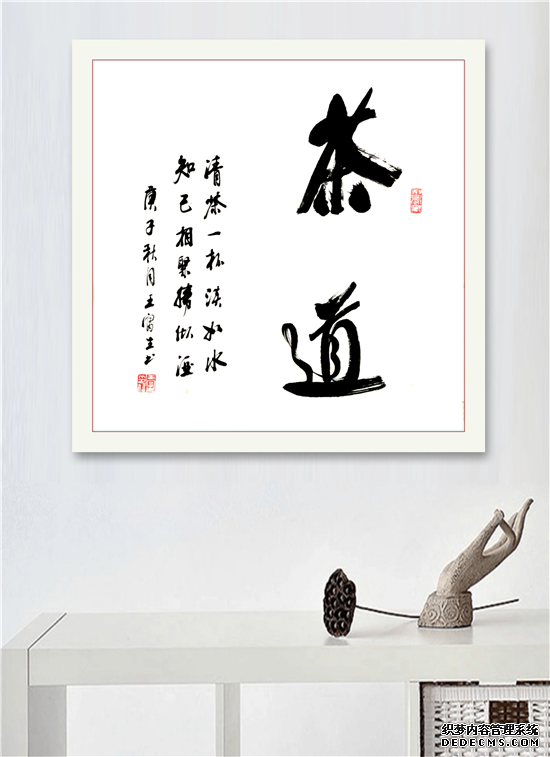 茶道
清茶一杯淡如水
知己相聚勝似酒
庚子秋月王富书
织梦内容管理系统
DEDECMS.COM